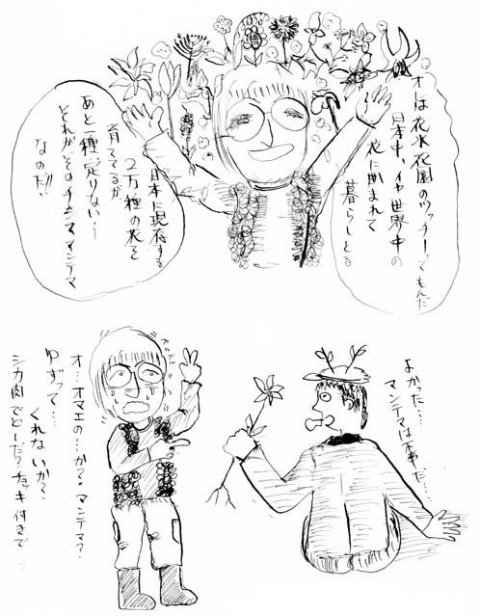 オレは花水花園のツッチーてもんだ
日本中、イヤ世界中の
花に囲まれて
暮らしとる
日本に現存する
2万種の花を
育ててるが
あと一種足りない…
それがそのチシママンテマ
なのだ!!
よかった…
マンテマは無事だ…
ガタガタ
オ…オマエの…か?マンテマ?
ゆずって…
くれないか?
シカ肉でどーだ?チョッキ付きで…?